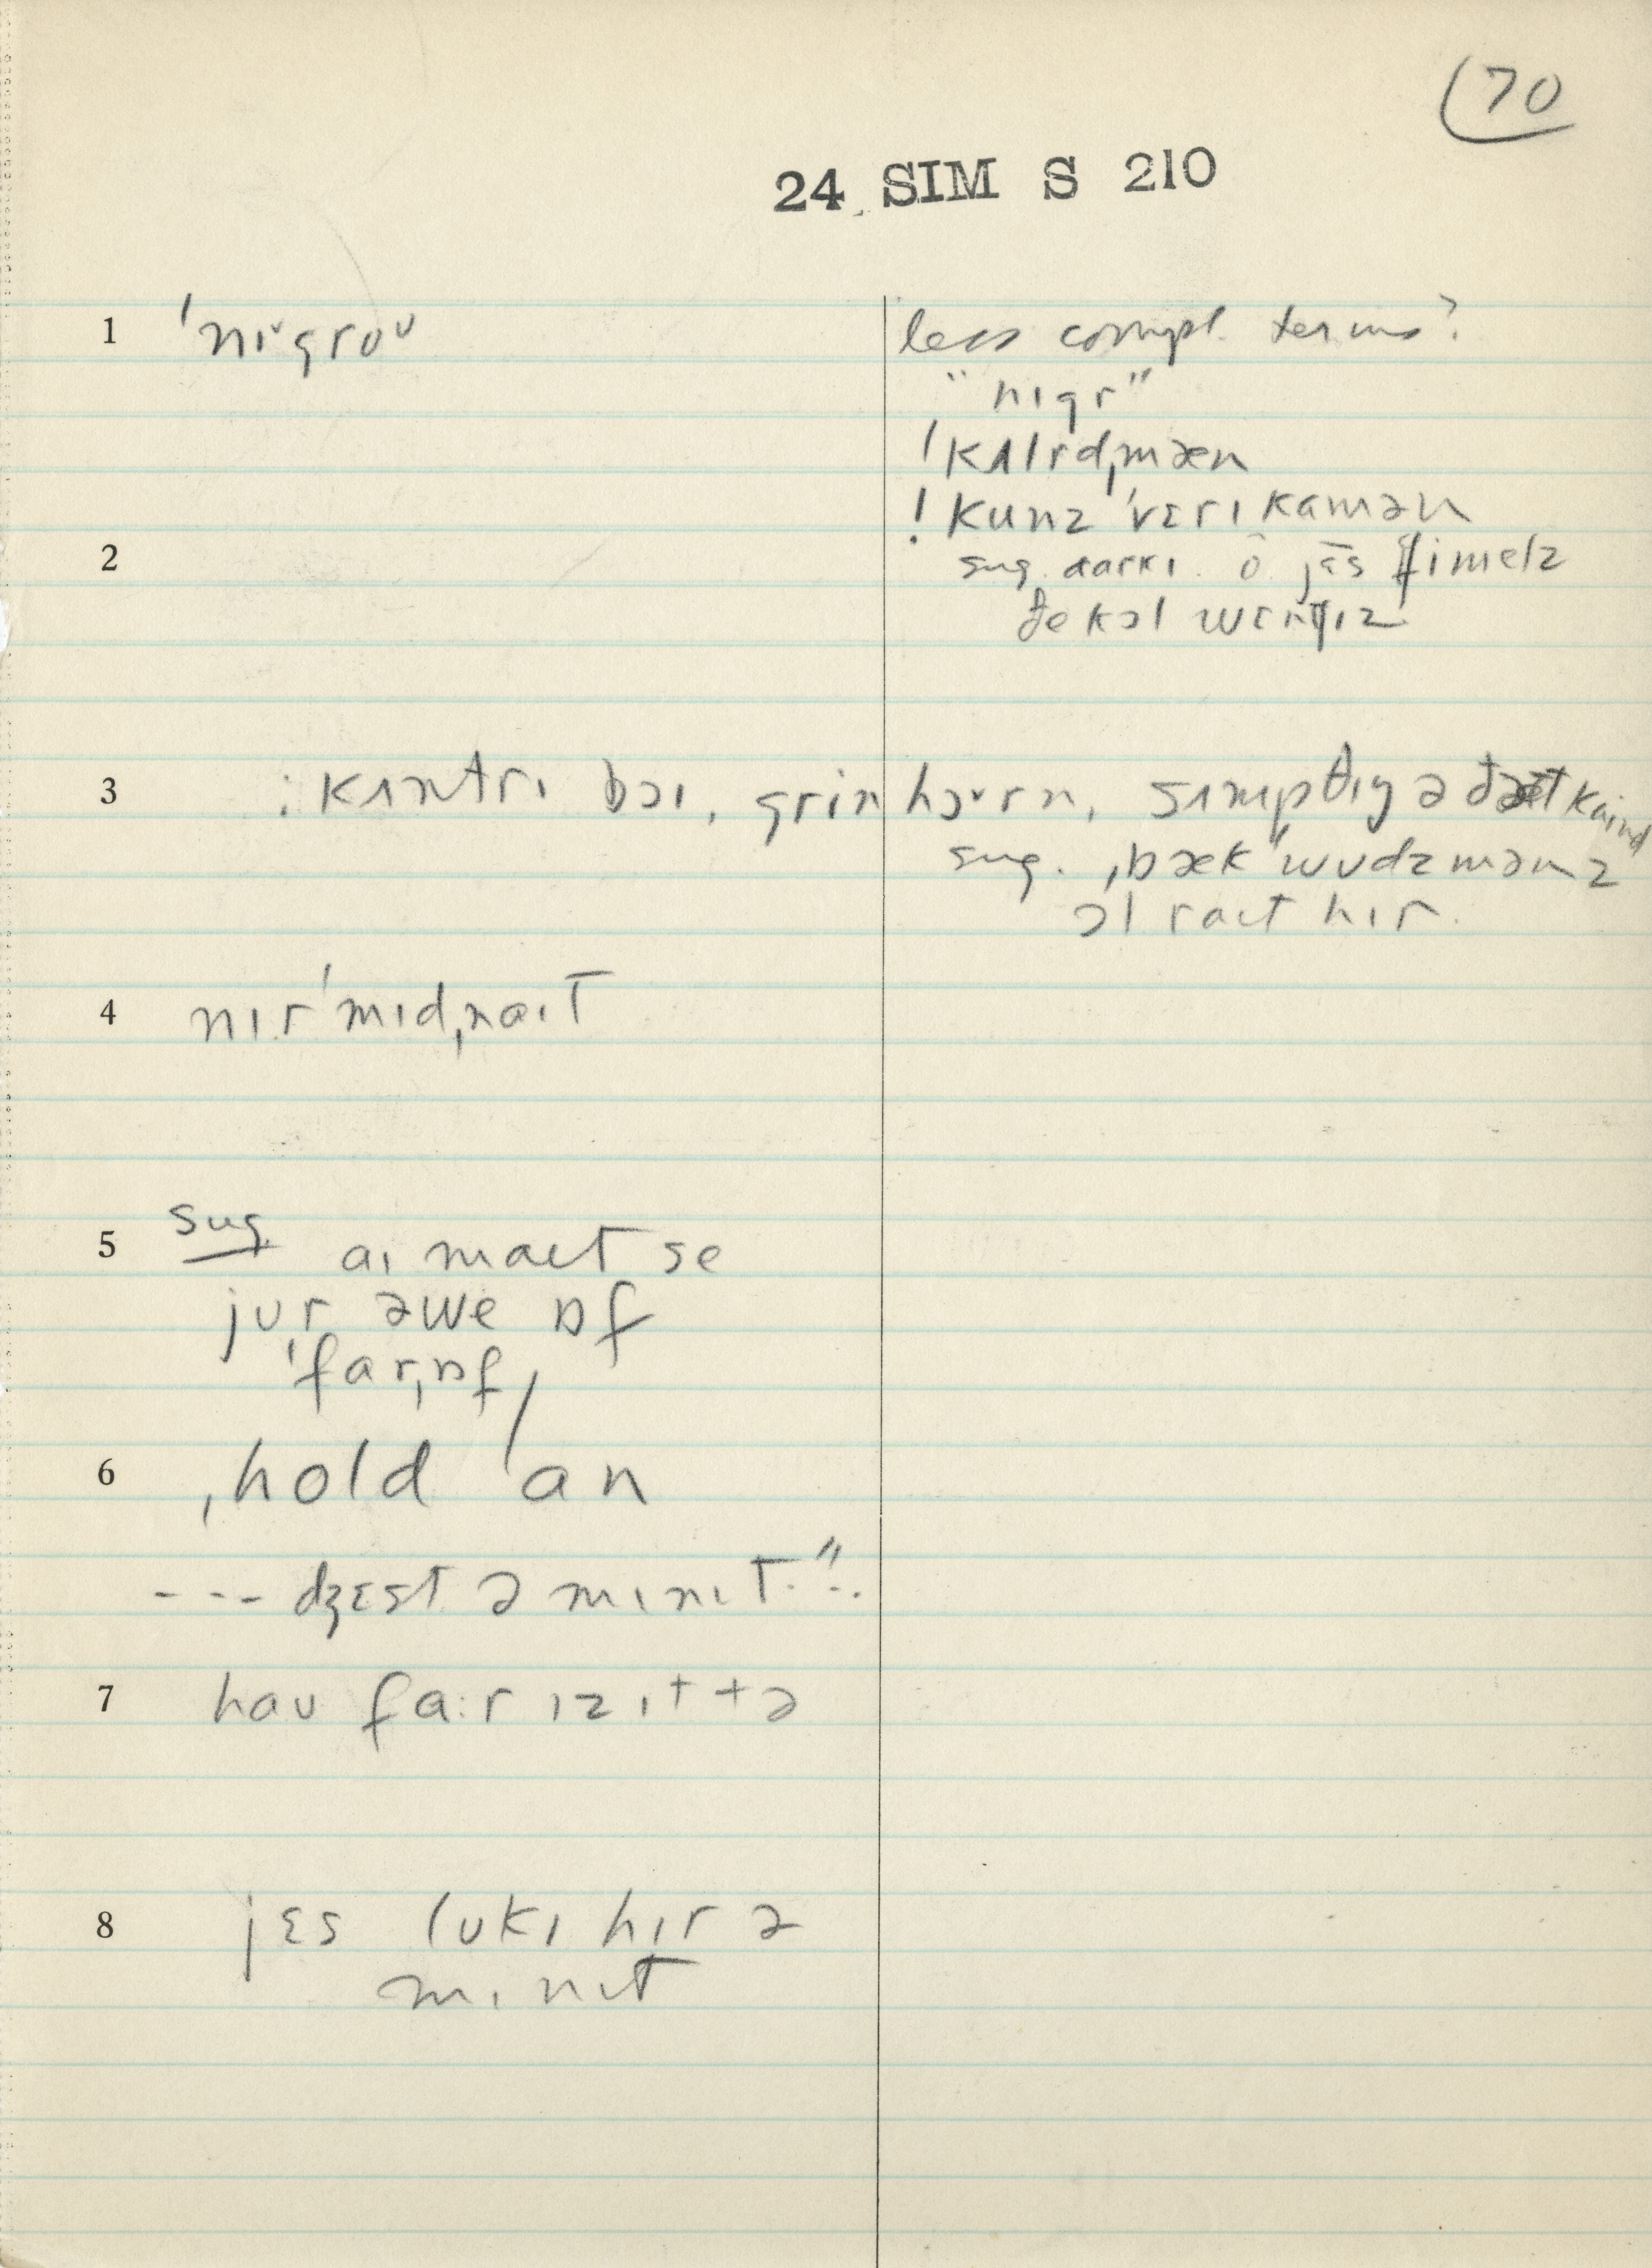 (70
24 SIM S 210
1 ˈniᵛgroᴜ less compl. terms?
"nɪgr"
ˈkʌlrd,mæn
! kunz ˈvɛrɪ kamən
2 sug. darkɪ. ô jɛ̄s fimelz
ðe kɔl wɛntʃɪz
3 : kʌntrɪ bɔɪ, grinhɔᵛrn, sʌmpθɪŋ ə ðæt kaɪnd
sug. ˌbækˈwʊdzmənz
ɔl raɪt hɪr.
4 nɪrˈmɪd,naɪt
5 sug aɪ maɪt se
jʊr əwe ɒf
ˈfar,ɒf
6 ˌhold ˈan
--- dʒɛst ə mɪnɪt."..
7 haʊ fa:r ɪz ɪt tə
8 jɛs lʊkɪ hɪr ə
mɪnɪt